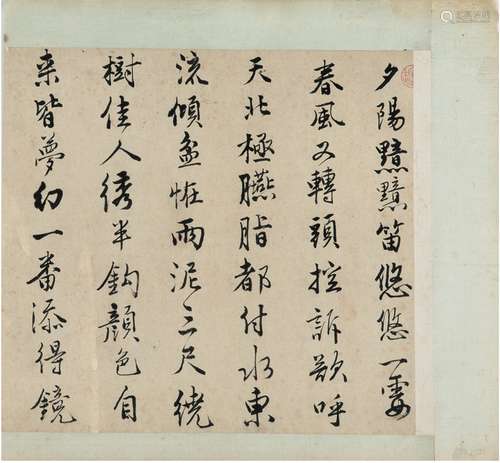 夕陽黯黯笛悠悠一霎
春風又轉頭控訴欲呼
天北極臙脂都付水東
流傾盆恠雨泥三尺繞
樹佳人綉半鈎顏色自
来皆夢幻一番添得鏡